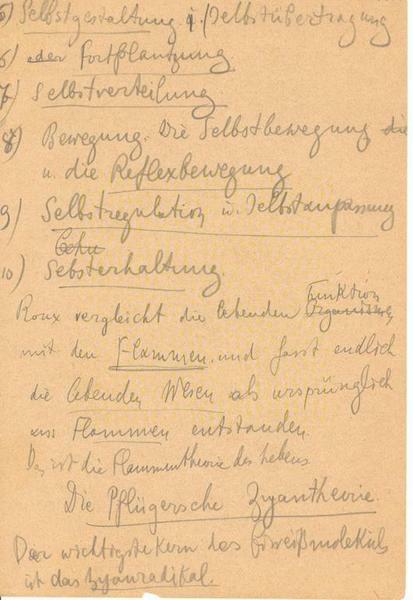 5) Selbstgestaltung u. (Selbstübertragung
6) oder Fortpflanzung
7) Selbstverteilung.
8) Bewegung. Die Selbstbewegung die
u. die Reflexbewegung
9) Selbstregulation u. Selbstanpassung
10) Sebsterhaltung.
Roux vergleicht die lebenden Funktion
mit den Flammen, und fasst endlich
die lebenden Wesen als ursprünglich
aus Flammen entstanden.
Das ist die Flammentheorie des Lebens
Die Pflügersche Zyantheorie.
Der wichtigste Kern des Eiweißmoleküls
ist das Zyanradikal.